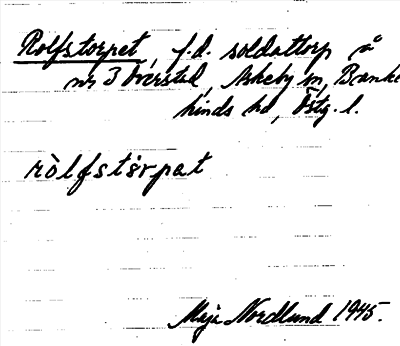 Rolfstorpet, f.d. soldattorp å
nr 3 Överstad, Askeby sn, Banke
kinds hd, Östg. l.
ròlfstòrpat
Maja Nordlund 1945.